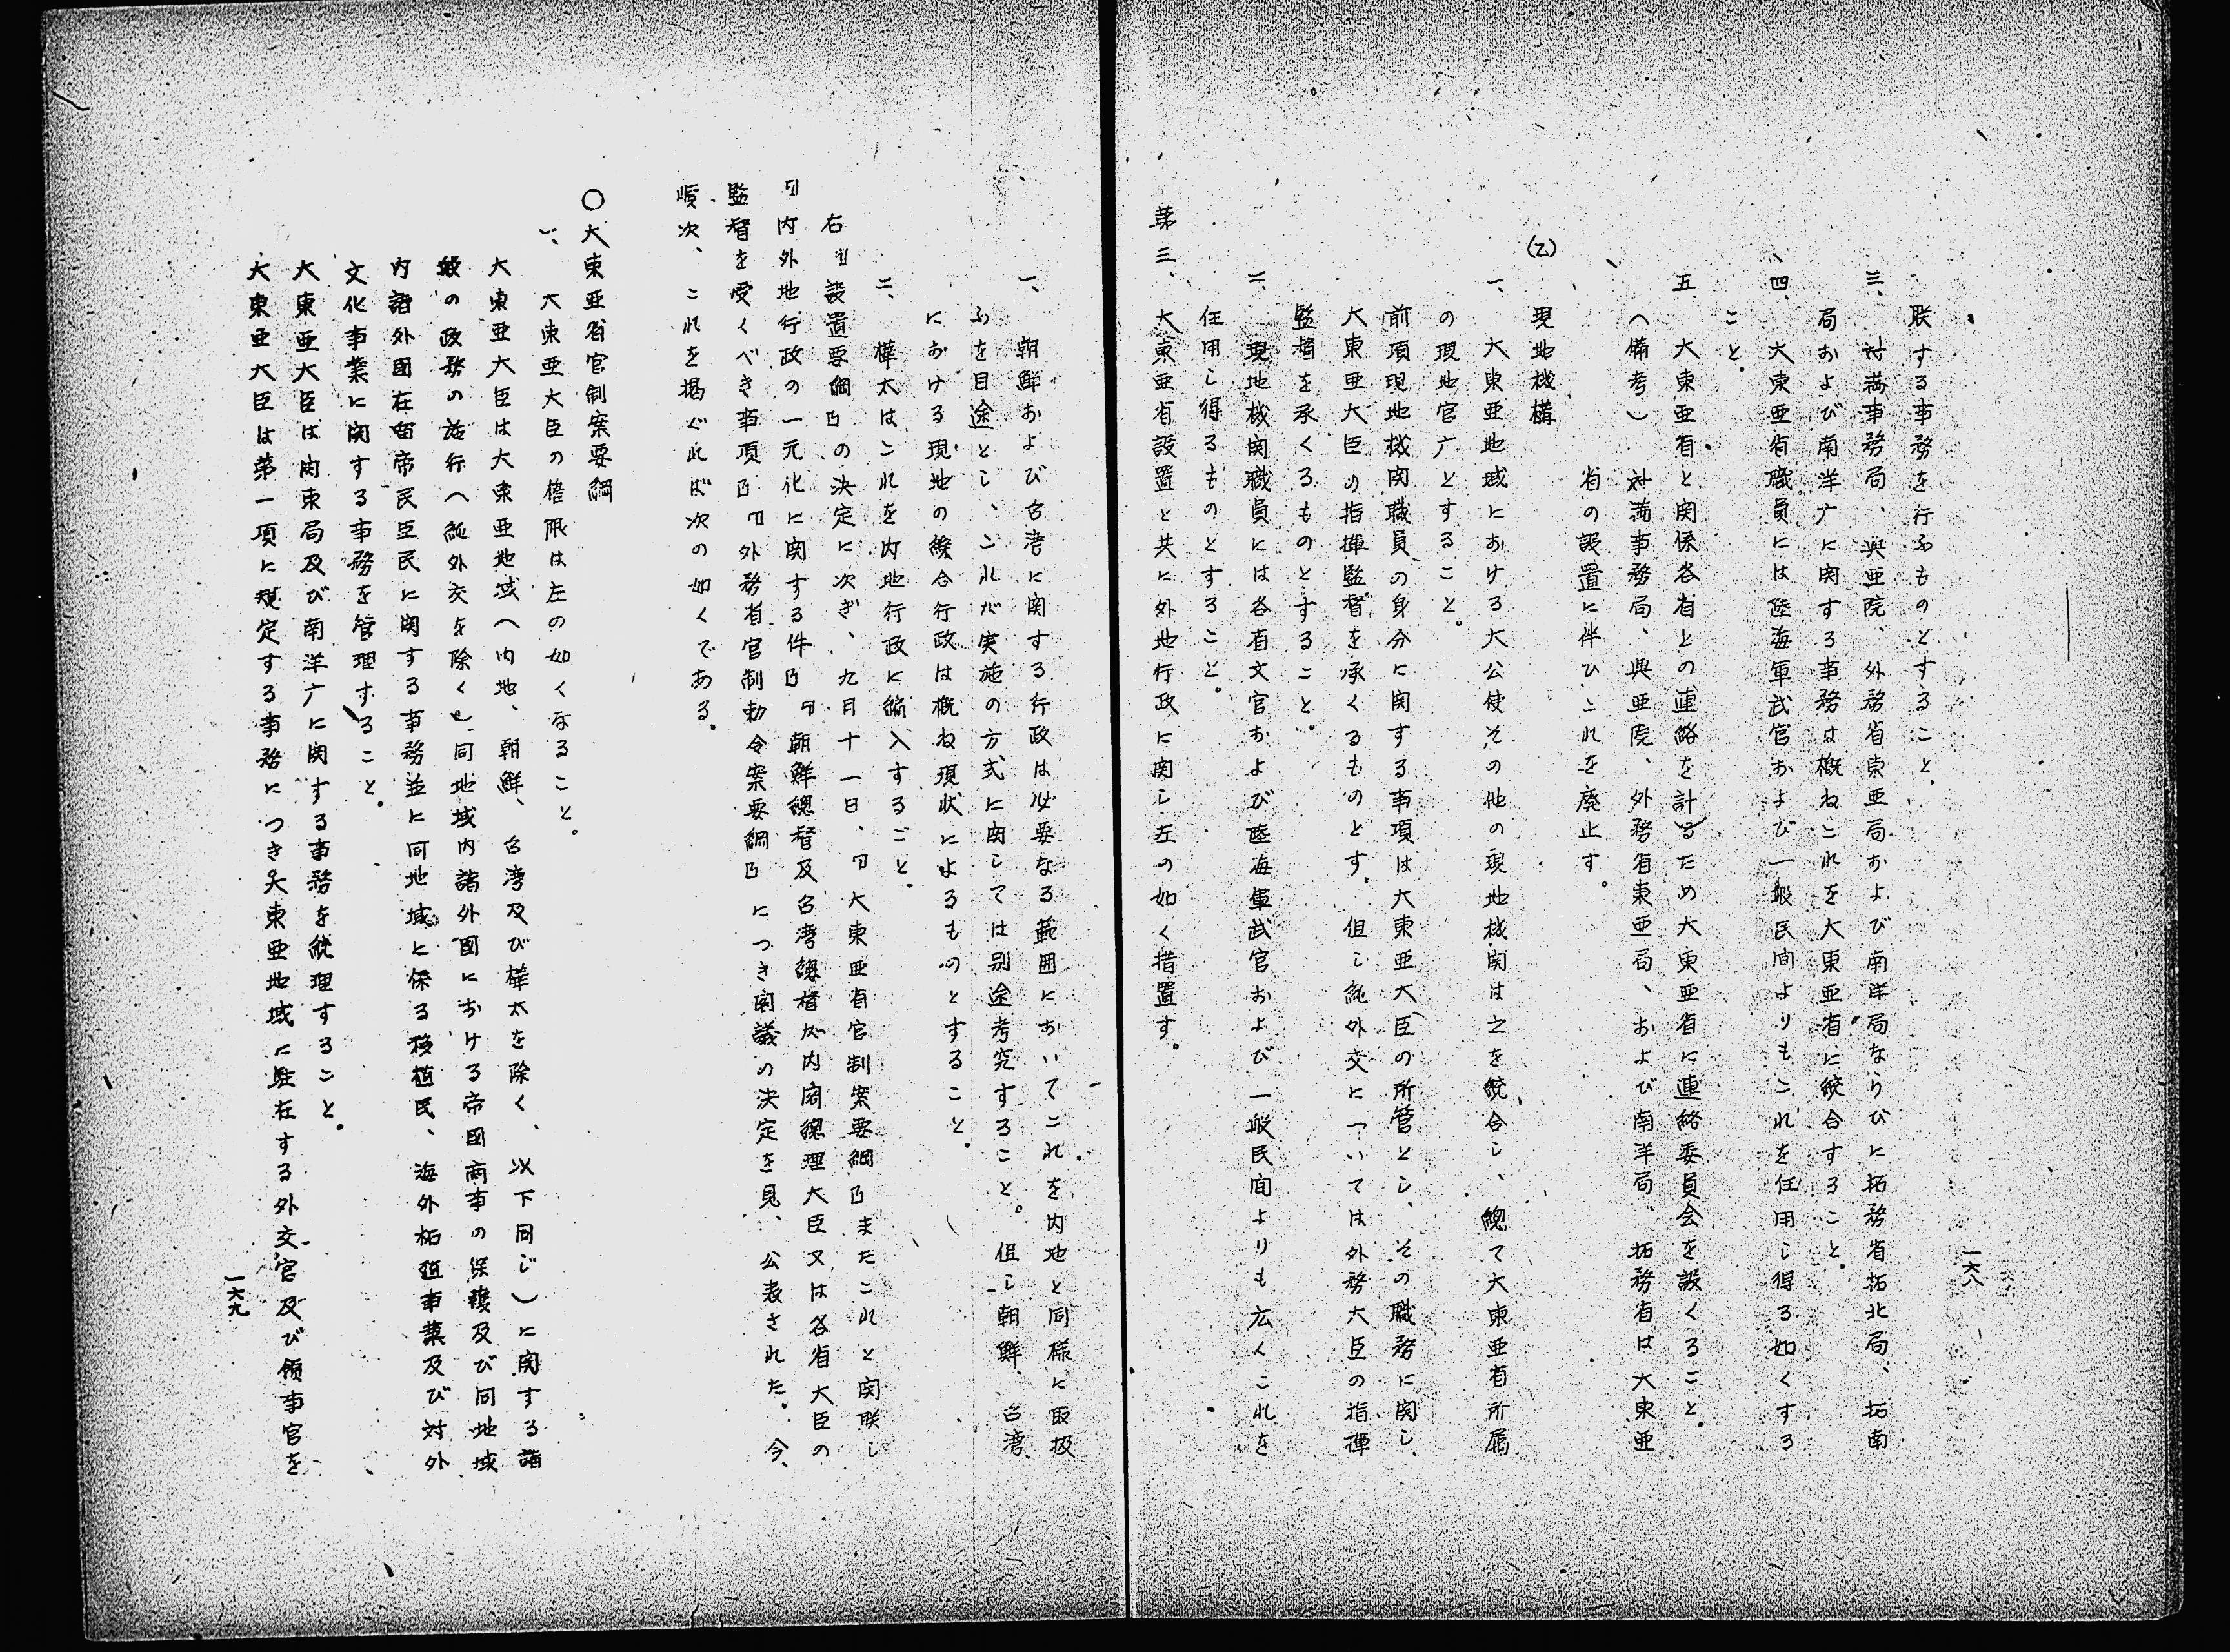 聨する事務を行ふものとすること。
三、対満事務局、興亜院、外務省東亜局および南洋局ならびに拓務省拓北局、拓南
局および南洋庁に関する事務は概ねこれを大東亜省に統合すること。
四、大東亜省職員には陸海軍武官および一般民間よりもこれを任用し得る如くする
こと。
五、大東亜省と関係各省との連絡を計るため大東亜省に連絡委員会を設くること。
（備考）対満事務局、興亜院、外務省東亜局、および南洋局、拓務省は大東亜
省の設置に伴ひこれを廃止す。
(乙)　現地機構
一、大東亜地域における大公使その他の現地機関は之を統合し、総て大東亜省所属
の現地官庁とすること。
前項現地機関職員の身分に関する事項は大東亜大臣の所管とし、その職務に関し、
大東亜大臣の指揮監督を承くるものとす、但し純外交については外務大臣の指揮
監督を承くるものとすること。
二、現地機関職員には各省文官および陸海軍武官および一般民間よりも広くこれを
任用し得るものとすること。
第三、大東亜省設置と共に外地行政に関し左の如く措置す。
一六八
一、朝鮮および台湾に関する行政は必要なる範囲においてこれを内地と同様に取扱
ふを目途とし、これが実施の方式に関しては別途考究すること。但し朝鮮、台湾
における現地の綜合行政は概ね現状によるものとすること。
二、樺太はこれを内地行政に編入すること。
右『設置要綱』の決定に次ぎ、九月十一日、『大東亜省官制案要綱』またこれと関聨し
『内外地行政の一元化に関する件』『朝鮮總督及台湾總督が内閣總理大臣又は各省大臣の
監督を受くべき事項』『外務省官制勅令案要綱』につき閣議の決定を見、公表された。今、
順次、これを掲ぐれば次の如くである。
○大東亜省官制案要綱
一、大東亜大臣の権限は左の如くなること。
大東亜大臣は大東亜地域（内地、朝鮮、台湾及び樺太を除く、以下同じ）に関する諸
般の政務の施行（純外交を除く）同地域内諸外国における帝国商事の保護及び同地域
内諸外国在留帝民臣民に関する事務並に同地域に係る移植民、海外拓植事業及び対外
文化事業に関する事務を管理すること。
大東亜大臣は関東局及び南洋庁に関する事務を統理すること。
大東亜大臣は第一項に規定する事務につき大東亜地域に駐在する外交官及び領事官を
一六九